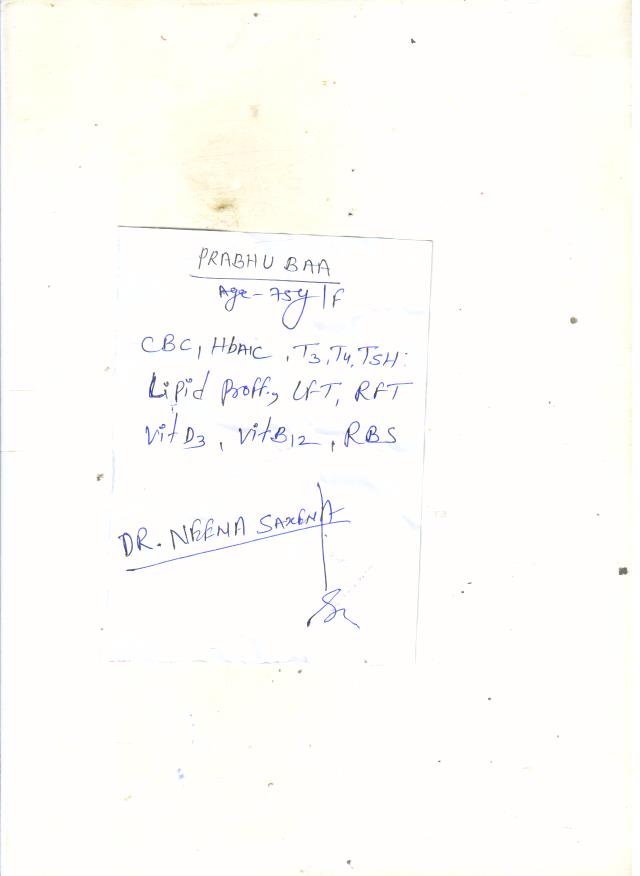 PRABHU BAA
Age - 75y/F
CBC, HbA1C, T3, T4, TSH.
Lipid Proff., LFT, RFT
Vit D3, Vit B12, RBS
DR. NEENA SAXENA